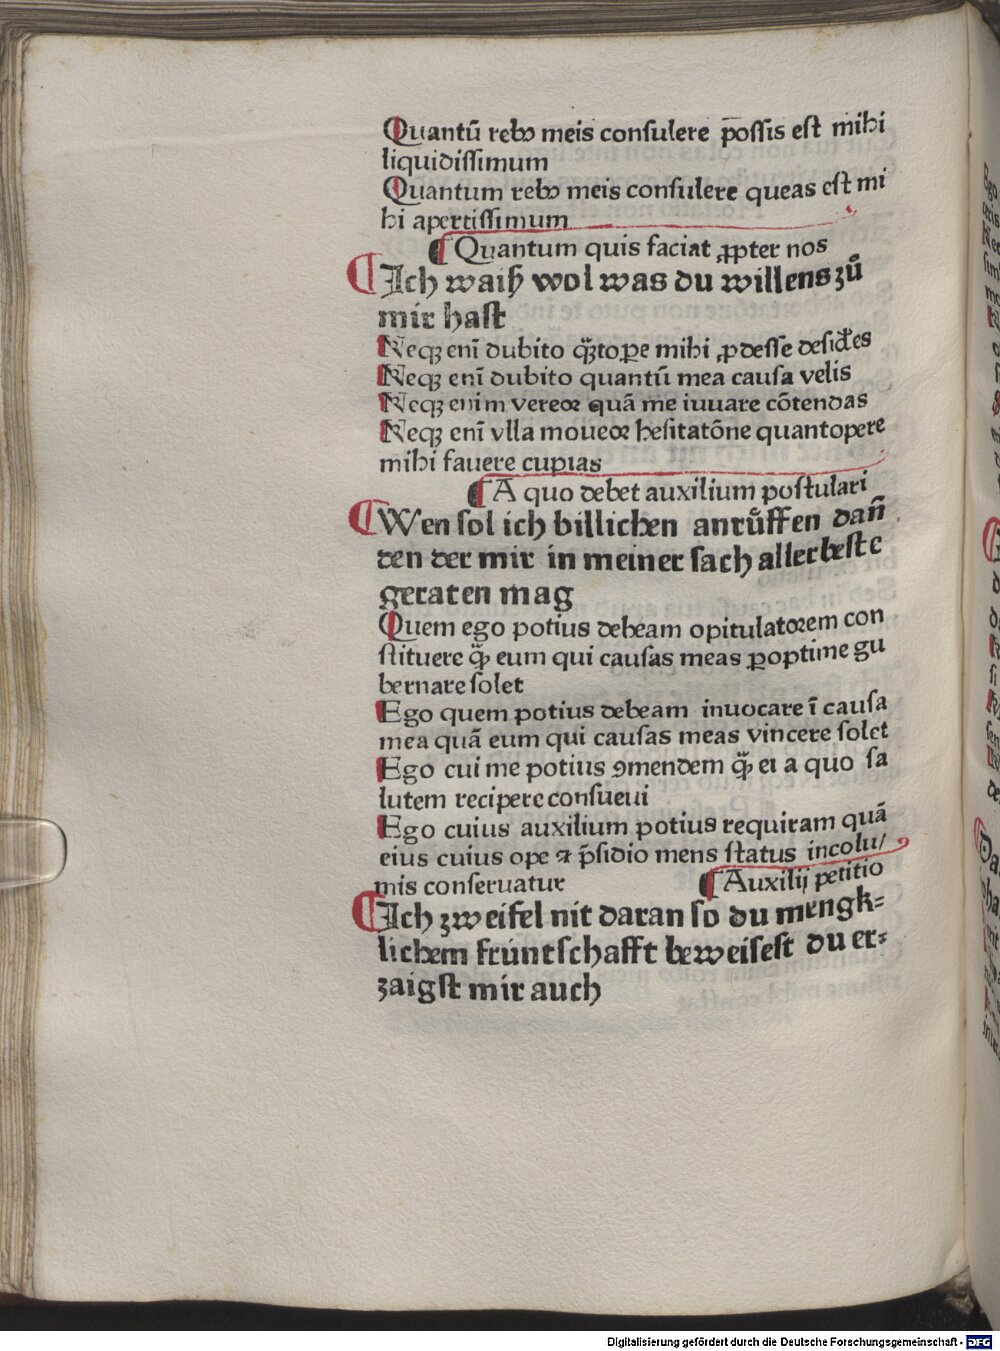 Quantū rebꝰ meis conſulere poſſis eſt mihi
liquidiſſimum
Quantum rebꝰ meis conſulere queas eſt mi
hi apertiſſimum
¶ Quantum quis faciat ꝓpter nos
¶ Ich waiß wol was du willens zů
mir haſt
Neqꝫ enī dubito q̄ꝫtoꝑe mihi ꝓdeſſe deſid̾es
Neqꝫ enī dubito quantū mea cauſa velis
Neqꝫ enim vereoꝛ quā me iuuare cōtendas
Neqꝫ enī vlla moueoꝛ heſitatōne quantopere
mihi fauere cupias
¶ A quo debet auxilium poſtulari
¶ Wen ſol ich billichen anrůffen dañ
den der mir in meiner ſach allerbeſte
geraten mag
Quem ego potius debeam opitulatoꝛem con
ſtituere q̄ꝫ eum qui cauſas meas ꝑoptime gu
bernare ſolet
Ego quem potius debeam inuocare ī cauſa
mea quā eum qui cauſas meas vincere ſolet
Ego cui me potius ꝯmendem q̄ꝫ ei a quo ſa
lutem recipere conſueui
Ego cuius auxilium potius requiram quā
eius cuius ope ⁊ p̄ſidio mens ſtatus incolu/
mis conſeruatur ¶ Auxilij petitio
¶ Ich zweifel nit daran ſo du mengk⸗
lichem frúntſchafft beweiſeſt du er⸗
zaigſt mir auch
Digitalisierung gefördert durch die Deutsche Forschungsgemeinschaft - DFG